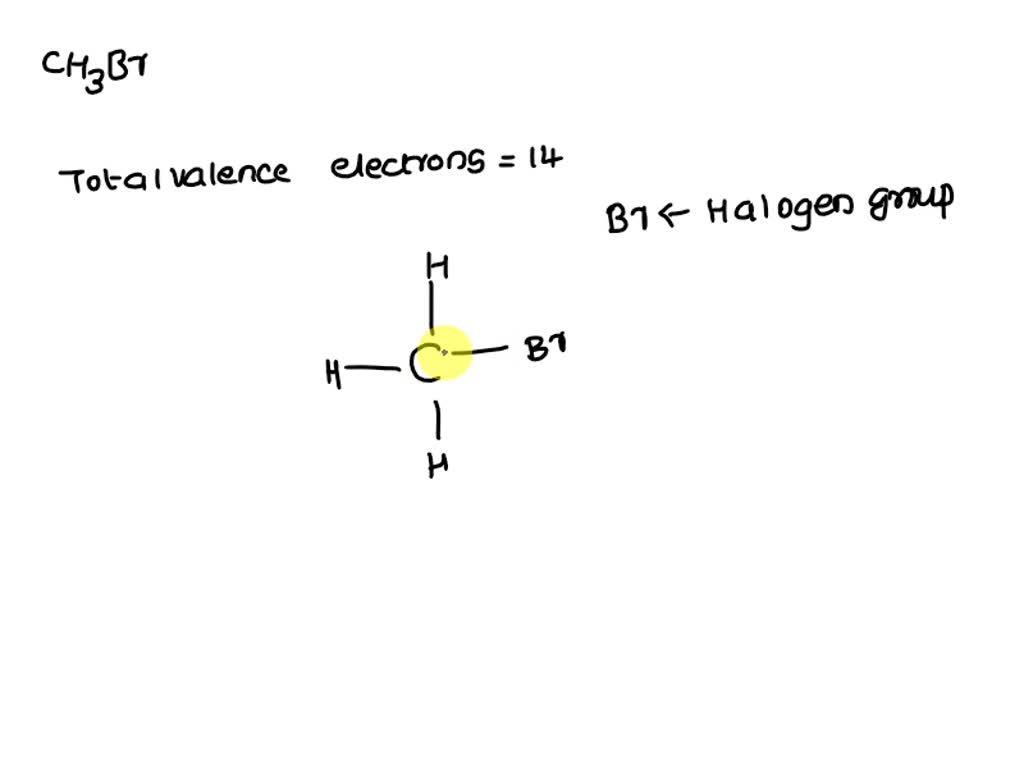 CH3Br
Total valence electrons = 14
Br ← Halogen group
H
H C Br
H